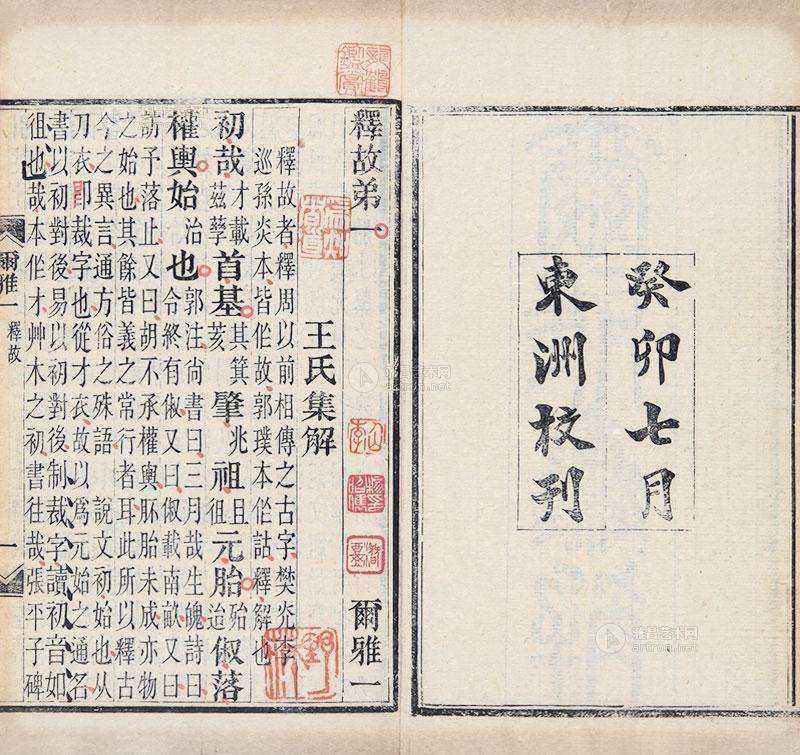 癸卯七月
東洲校刊
釋故弟一 爾雅一
王氏集解
釋故者釋周以前相傳之古字樊光李
巡孫炎本皆作故郭璞本作詁釋解也
初哉才載茲孽首基其箕亥肇兆祖且徂元胎殆迨俶落
權輿始治也郭注尚書曰三月哉生魄詩曰令終有俶又曰俶載南畝又曰
訪予落止又曰胡不承權輿胚胎未成亦物
之始也其餘皆義之常行者耳此所以釋古
今之異言通方俗之殊語 說文初始也从
刀衣卽裁字也從才衣故以爲元始之通名
書以初對後易以初對後制裁字讀初音如
徂也哉本作才艸木之初書往哉張平子碑
爾雅一 釋故 一